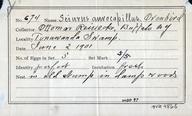 No. 674 Name, Seiurus aurocapillus, Ovenbird
Collector Ottomar Reinecke, Buffalo N.Y.
Locality Tonawanda Swamp.
Date June 2 1901
No. of Eggs in Set 5 Set Mark 3/5
Identity perfect Incubation fresh
Nest in old stump in damp woods